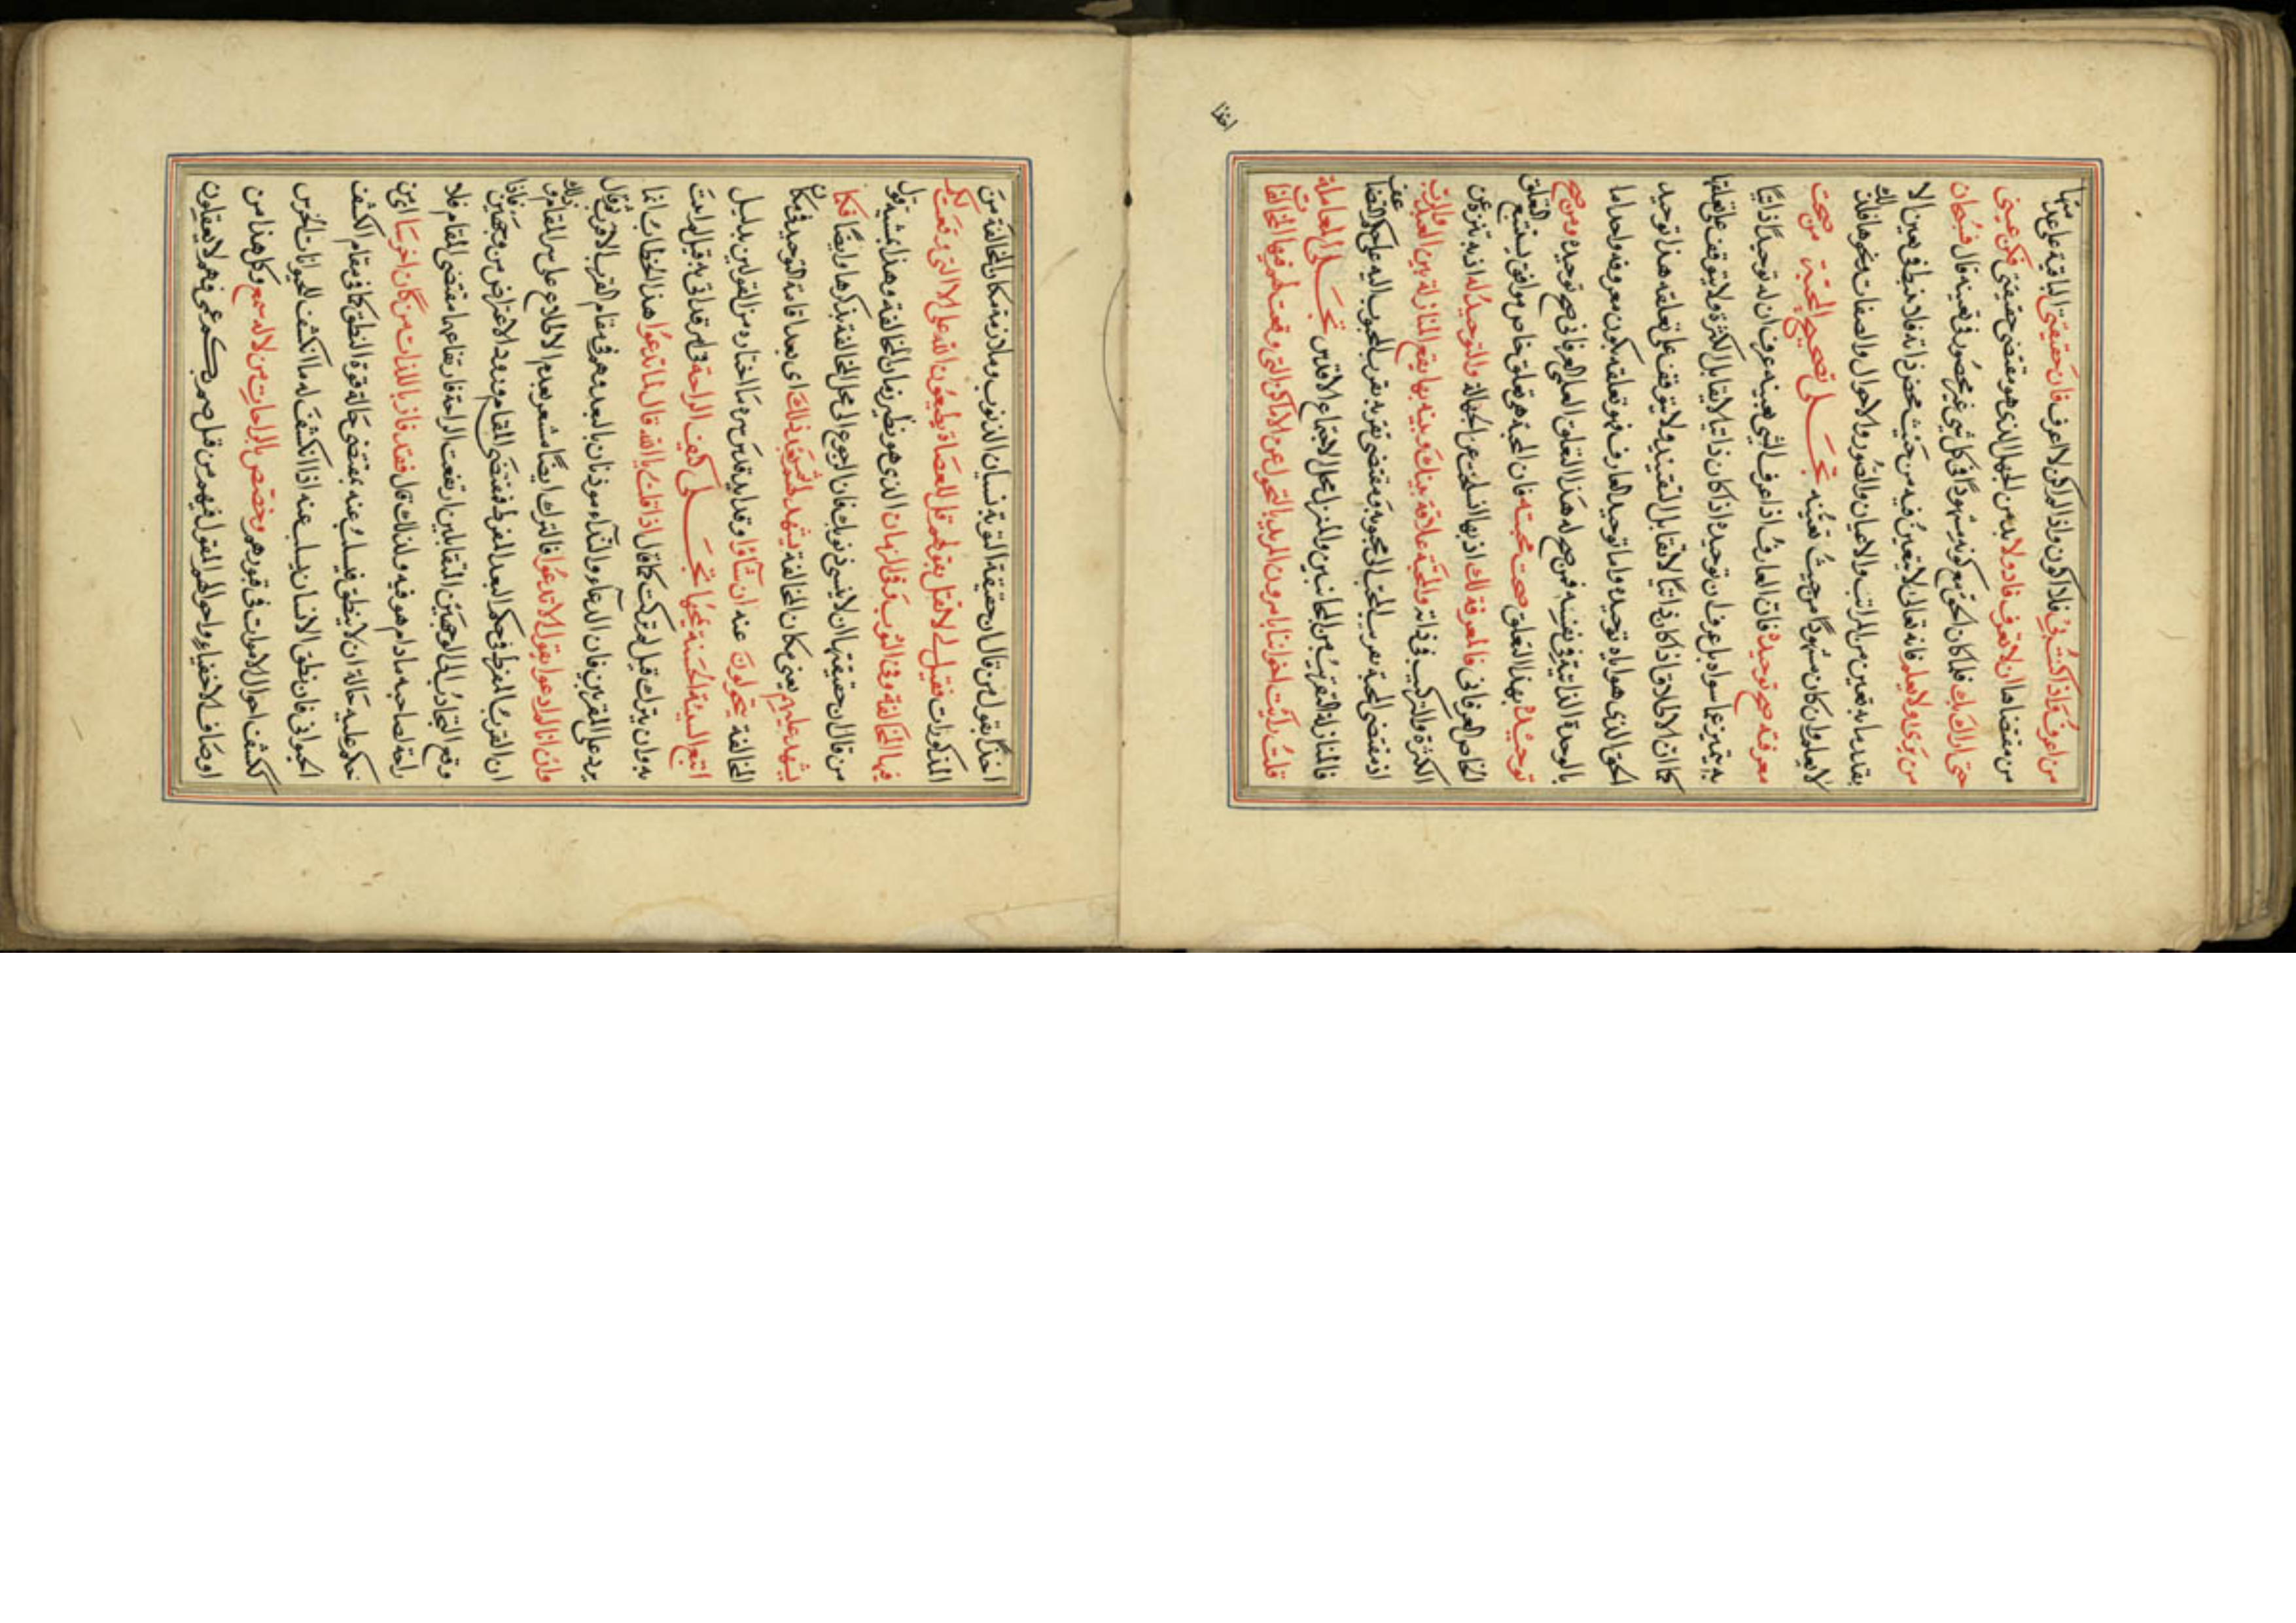 من اعرف فاذا كنت بي فلا اكون واذا لم اكن لا اعرف فان حقيقتي الباقية على عدمها
من مقتضاها ان لا تعرف فاذن ولا بد من الجهل الذي هو مقتضى حقيقتي فكن عيني
حتى اراك بك فلما كان الحق مع كونه مشهودا في كل شي غير محصور في تعينه قال فسبحان
من يرى ولا يعلم فانه تعالى لا يتعين فيه من حيث محض ذاته فلا في تعين الا
بقدر ما به تعين من المراتب والاعيان والصور والاحوال والصفات ونحوها فلذلك
لا يعلم وان كان مشهودا من حيث تعينه تجلى تصحيح المحبة من صحت
معرفته صح توحيده فان العارف اذا عرف الشي بعينه عرف ان له توحيدا ذاتيا
به يتميز عما سواه بل عرف ان توحيده اذا كان ذاتيا لا يقابل الكثرة ولا يتوقف على تعلقها
كما ان الاطلاق اذا كان ذاتيا لا يقابل التقييد ولا يتوقف على تعلقه هذا توحيد
الحق الذي هو اياه توحيده واما توحيد العارف فهو تعلقه بكون معروفه واحدا
بالوحدة الذاتية في نفسه فمن صح له هذا التعلق العلمي العرفاني صح توحيده ومن صح
توحيده بهذا التعلق صحت محبته فان المحبة هو تعلق خاص موافق يستتبع التعلق
الخاص العرفاني فالمعرفة لك اذ بها انسلخت عن الجهالة والتوحيد له اذ به تنزه عن
الكثرة والتركيب في ذاته والمحبة علاقة بينك وبينه بها يقع المنازلة بين العبد والرب
اذ مقتضى المحبة تقريب المحب الى محبوبه ومقتضى تقربه تقرب المحبوب اليه على حكم التضاعف
فالمنازلة التقريب من الجانبين والمنزل محل الاجتماع الاقدس تجلى المعاملة
قلت رايت اخواننا يامرون المريد بالتحول عن الاماكن التي وقعت لهم فيها المخالفات
اخذا
اخذا بقول من قال ان حقيقة التوبة نسيان الذنوب وملازمة مكان المخالفة من
المذكرات فقيل لي لا تقل بقولهم قل للعصاة يطيعون الله على الارض التي وقعت لكم
فيها المخالفة وفي الثوب وفي الزمان الذي هو نظير زمان المخالفة وهذا قول
من قال ان حقيقتها ان لا تنسى ذنوبك فان الرجوع الى محل المخالفة يذكرها وايضا فكما
يشهد عليهم يعني مكان المخالفة يشهد لهم ثم بعد ذلك اي بعد اقامة التوحيد في مكان
المخالفة يتحولون عنه ان شاؤا وقد ايد قدس سره ما اختاره من القولين بدليل
اتبع السيئة الحسنة تمحها تجلى كيف الراحة
به وان يترك قيل لم تركت كما قال اذا قلت يا الله قال لما تدعوا هذا الخطاب انما
يرد على المقربين فان الدعاء والنداء موذنان بالبعد وهم في مقام القرب الاقرب ثم قال
وان انا لم ادعوا يقول الا تدعوا فالترك ايضا مشعر بعدم الاطلاع على سر المقام وذلك
ان القرب المفرط في حكم البعد المفرط فمقتضى المقام ورود الاعتراض من وجهين فاذا
وقع التجاذب الى الوجهين المتقابلين ارتفعت الراحة فارتفاعها مقتضى المقام فلا
راحة لصاحبه ما دام هو فيه ولذلك قال فقد فاز باللذات من كان اخرسا اي من
حكم عليه حالة ان لا ينطق فيسلب عنه بمقتضى حالة قوة النطق كما في مقام الكشف
الحيواني فان نطق الانسان يسلب عنه اذا انكشف له ما انكشف للحيوانات الخرس
ككشف احوال الاموات في قبورهم وخصص بالراحات من لا له سمع وكل هذا من
اوصاف الاخفياء واحوالهم المقول فيهم من قبل صم بكم عمي فهم لا يعقلون